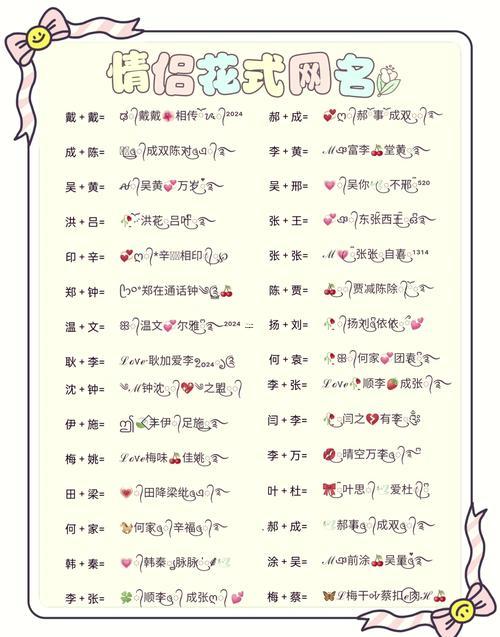 情侣花式网名
戴+戴= 戴戴🌺相传2024
成+陈= 成双陈对
吴+黄= 吴黄💞万岁
洪+吕= 🥀洪花吕叶
印+辛= 💞*辛相印
郑+钟= 郑在通话钟🍒
温+文= 温文💕尔雅2024
耿+李= Love耿加爱李2024
沈+钟= M钟沈💖之盟
伊+施= 丰伊足施
梅+姚= Love梅味🍒佳姚
田+梁= 💗田降梁纰
何+家= 何家辛福
韩+秦= 💗韩秦脉脉
李+张= 🍀顺李成张💕
郝+成= 💞郝事成双
李+黄= M富李🍒堂黄
吴+邢= 💗吴你不邢520
张+王= 💕东张西王
张+张= M💔张张自喜1314
陈+贾= 🍒贾减陈除
扬+刘= 🥀扬刘依依💕
何+袁= 🥀何家💕团袁
李+张= Love🥀顺李🍓成张
闫+李= 🥀闫之💔有李
李+万= 💋晴空万李
叶+杜= 🎀叶思爱杜
.郝+成= 郝事成双
涂+吴= M前涂🍒吴量
梅+蔡= 🦋梅干蔡扣肉🍒